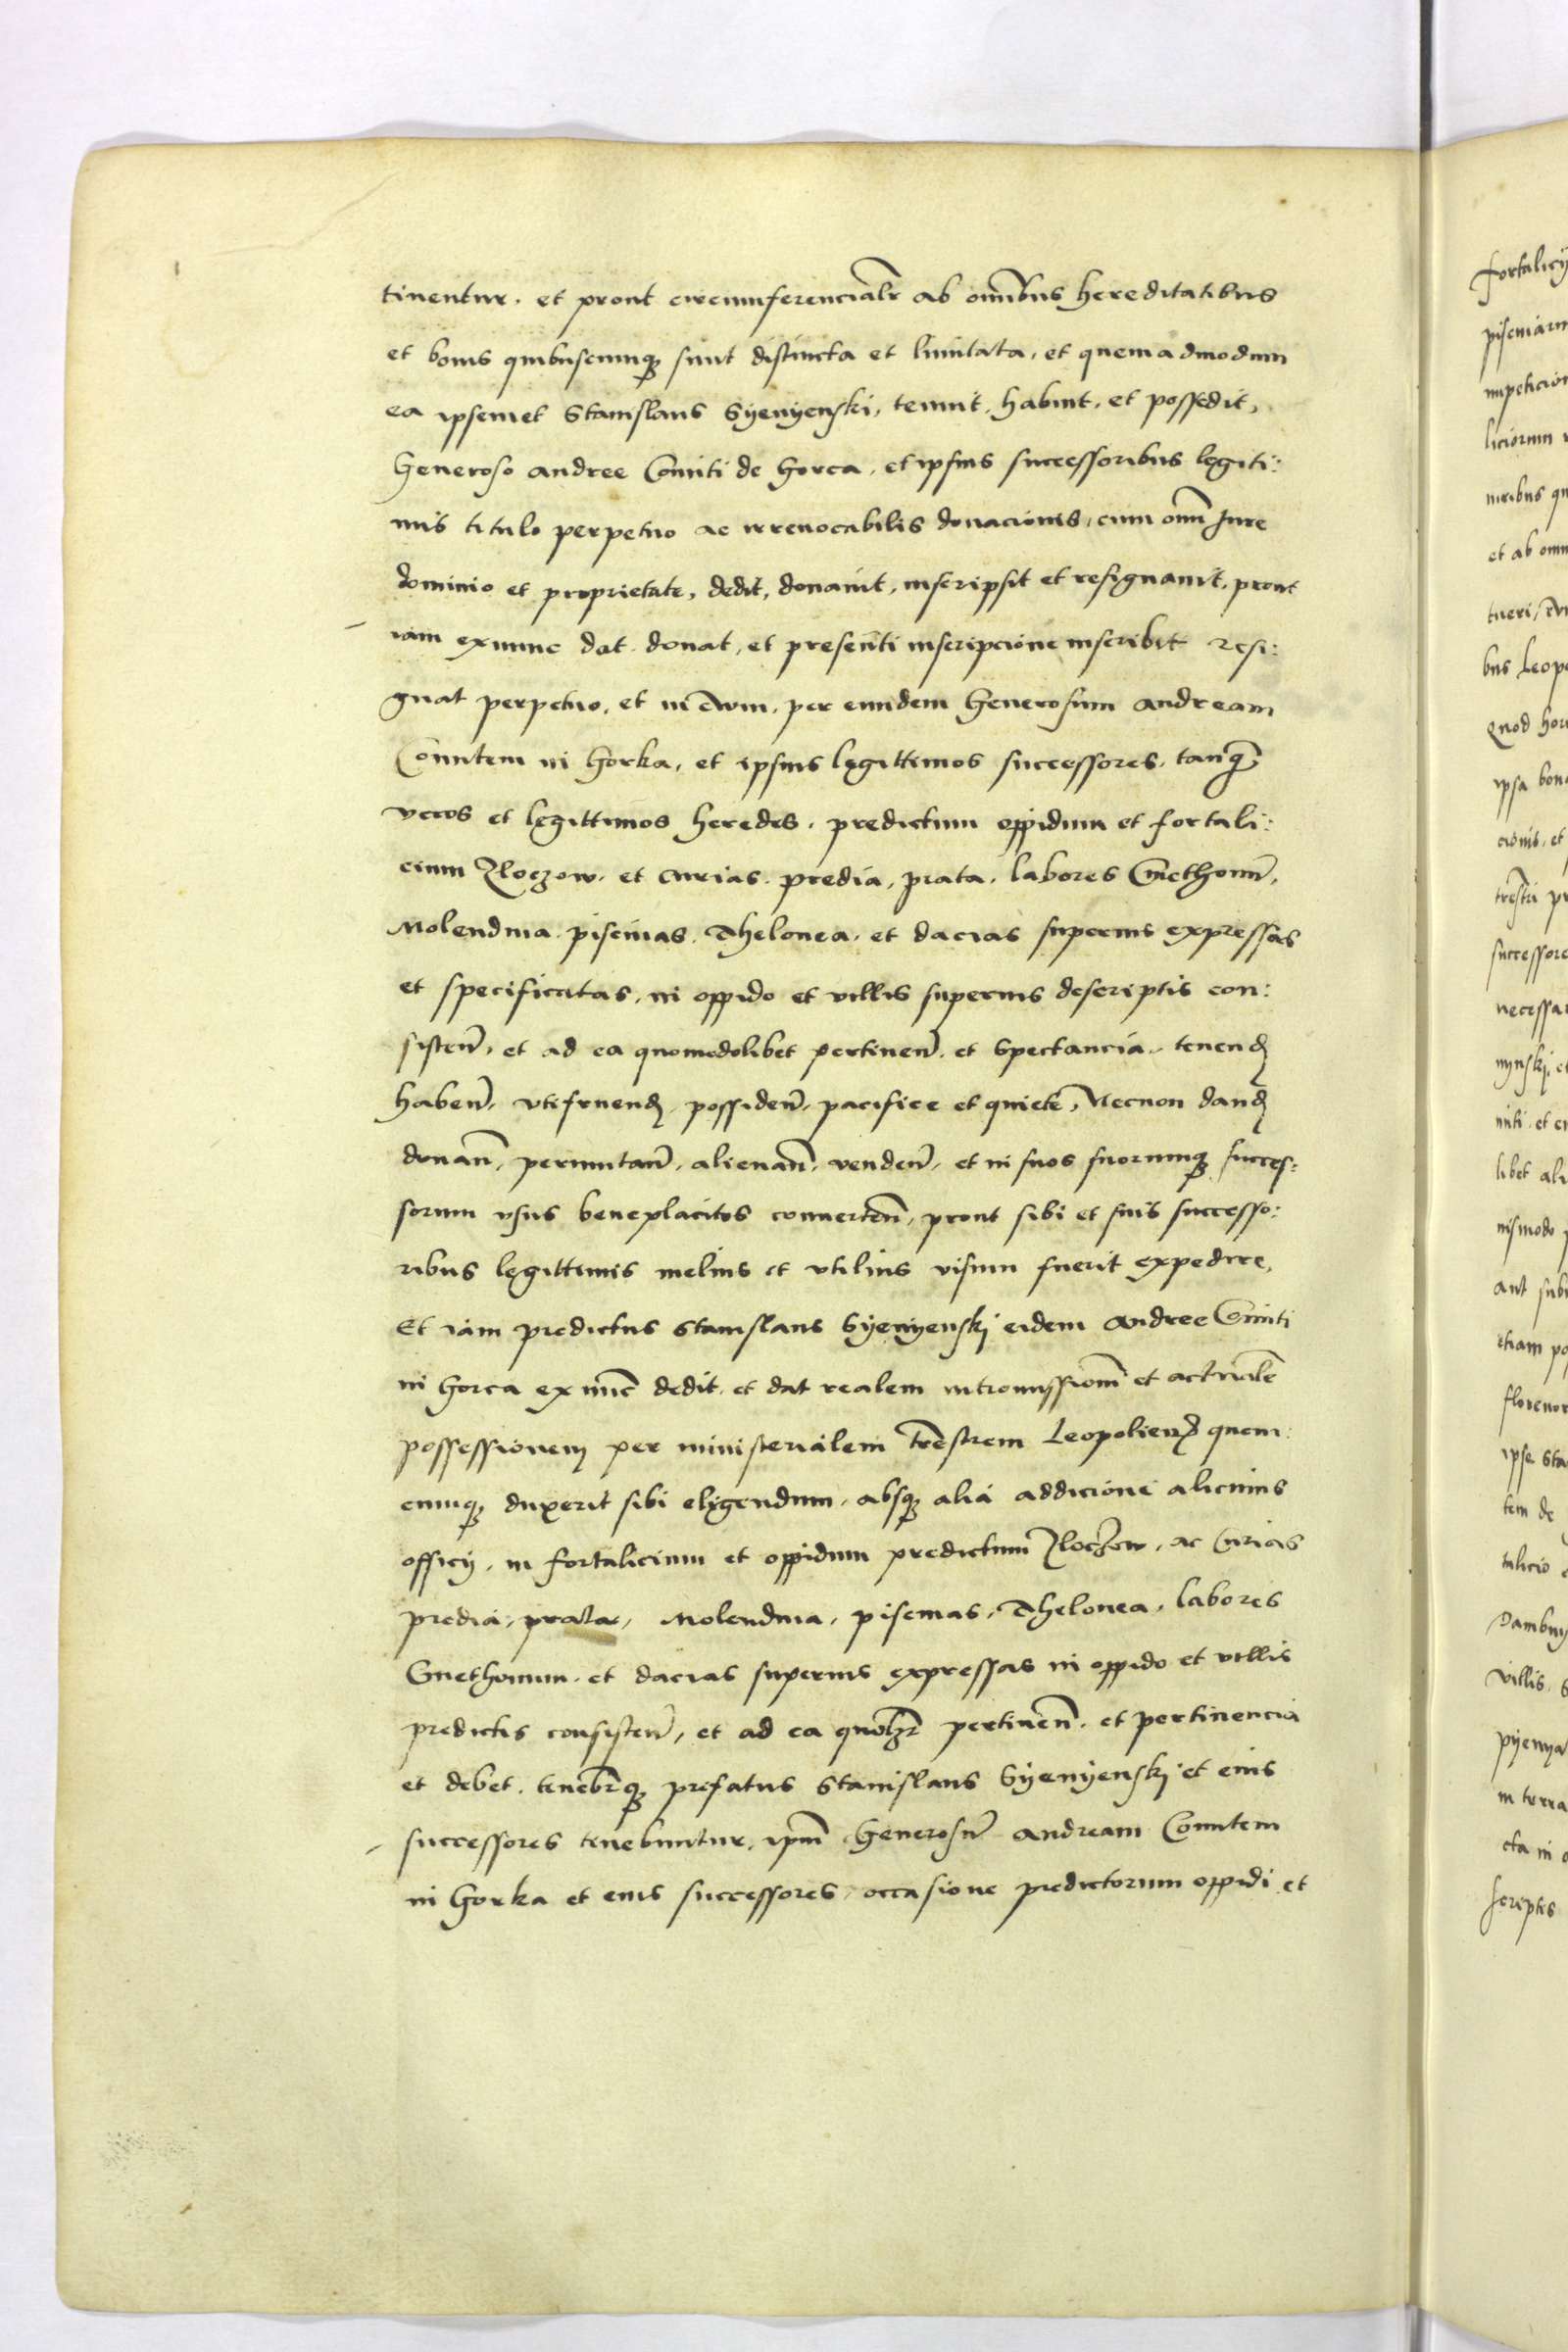 tinentur. et prout circumferencialr ab omnibus hereditatibus
et bonis quibuscumq; sunt distincta et limitata, et quemadmodum
ea ipsemet Stanislaus Syenyenski, tenuit, habuit, et possedit,
Generoso Andree Comiti de Gorca, et ipsius successoribus legiti:
mis titulo perpetuo ac irreuocabilis donacionis, cum omni Jure
dominio et proprietate, dedit, donauit, inscripsit et resignauit, prout
iam exnunc dat donat, et presenti inscripcione inscribit resi:
gnat perpetuo, et in ewm, per eundem Generosum Andream
Comitem in Gorka, et ipsius legittimos successores, tanq̃
veros et legittimos heredes, predictum oppidum et fortali:
cium Zloczow, et Curias, predia, prata, labores Cmethonũ,
Molendina piscinas, Thelonea, et dacias superius expressas
et specificatas, in oppido et villis superius descriptis con:
sisteñ, et ad ea quomodolibet pertineñ, et spectancia, tenend
habeñ, vtifruend, possideñ, pacifice et quiete, Necnon dand
donañ, permutañ, alienañ, vendeñ, et in suos suorumq; succes:
sorum vsus beneplacitos conuerteñ, prout sibi et suis successo:
ribus legittimis melius et vtilius visum fuerit expedire,
Et iam predictus Stanislaus Syenyenskj eidem Andree Comiti
in Gorca ex nũc dedit, et dat realem intromissionẽ et actualẽ
possessionem per ministerialem trẽstrem Leopolien̄ quem:
cumq; duxerit sibi eligendum, absq; alia addicione alicuius
officij, in fortalicium et oppidum predictum Zloczow, ac Curias
predia, prata, Molendina, piscinas, Thelonea, labores
Cmethonum, et dacias superius expressas in oppido et villis
predictis consisteñ, et ad ea quolz̃ pertineñ, et pertinencia
et debet, tenebr̃q; prefatus Stanislaus Syenyenskj et eius
successores tenebuntur, ipm̃ Generosũ Andream Comitem
in Gorka et eius successores, occasione predictorum oppidi et